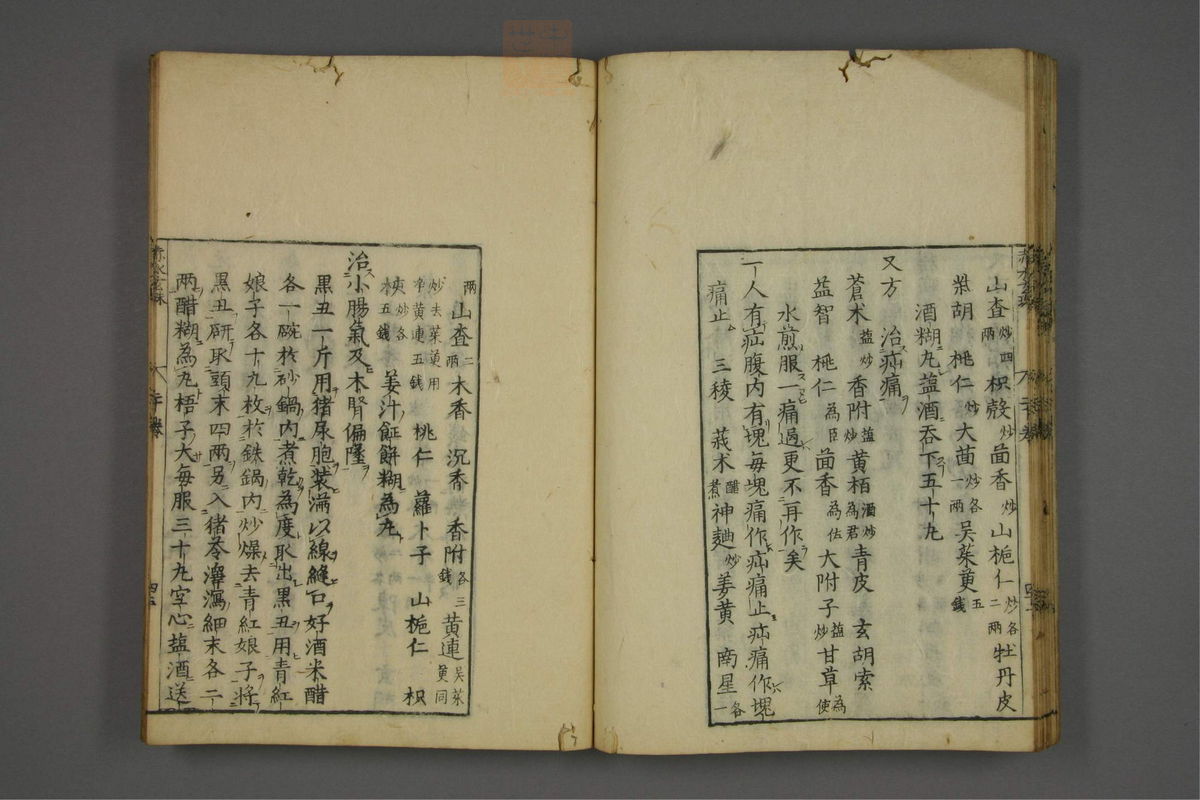 山査炒四兩枳殻炒茴香炒山梔仁炒各二兩牡丹皮
柴胡桃仁炒大茴炒各一兩吴茱萸五錢
酒糊丸盐酒吞下五十丸
又方治疝痛
蒼术盐炒香附盐炒黄栢酒炒為君青皮玄胡索
益智桃仁為臣茴香為佐大附子盐炒甘草為使
水煎服一痛過更不再作矣
一人有疝腹内有塊每塊痛作疝痛止疝痛作塊
痛止三稜莪术醋煮神麯炒姜黄南星各一
兩山査二兩木香沉香香附各三錢黄連吴茱萸同
炒去茱萸用净黄連五錢桃仁蘿卜子山梔仁枳
核炒各五錢姜汁餁餅糊為丸
治小腸氣及木腎偏墜
黒丑一斤用猪尿胞装满以線縫口好酒米醋
各一碗於砂鍋内煮乾為度取出黒丑用青紅
娘子各十九枚於銕鍋内炒燥去青紅娘子将
黒丑研取頭末四兩另入猪苓澤瀉細末各二
兩醋糊為丸梧子大每服三十丸空心盐酒送